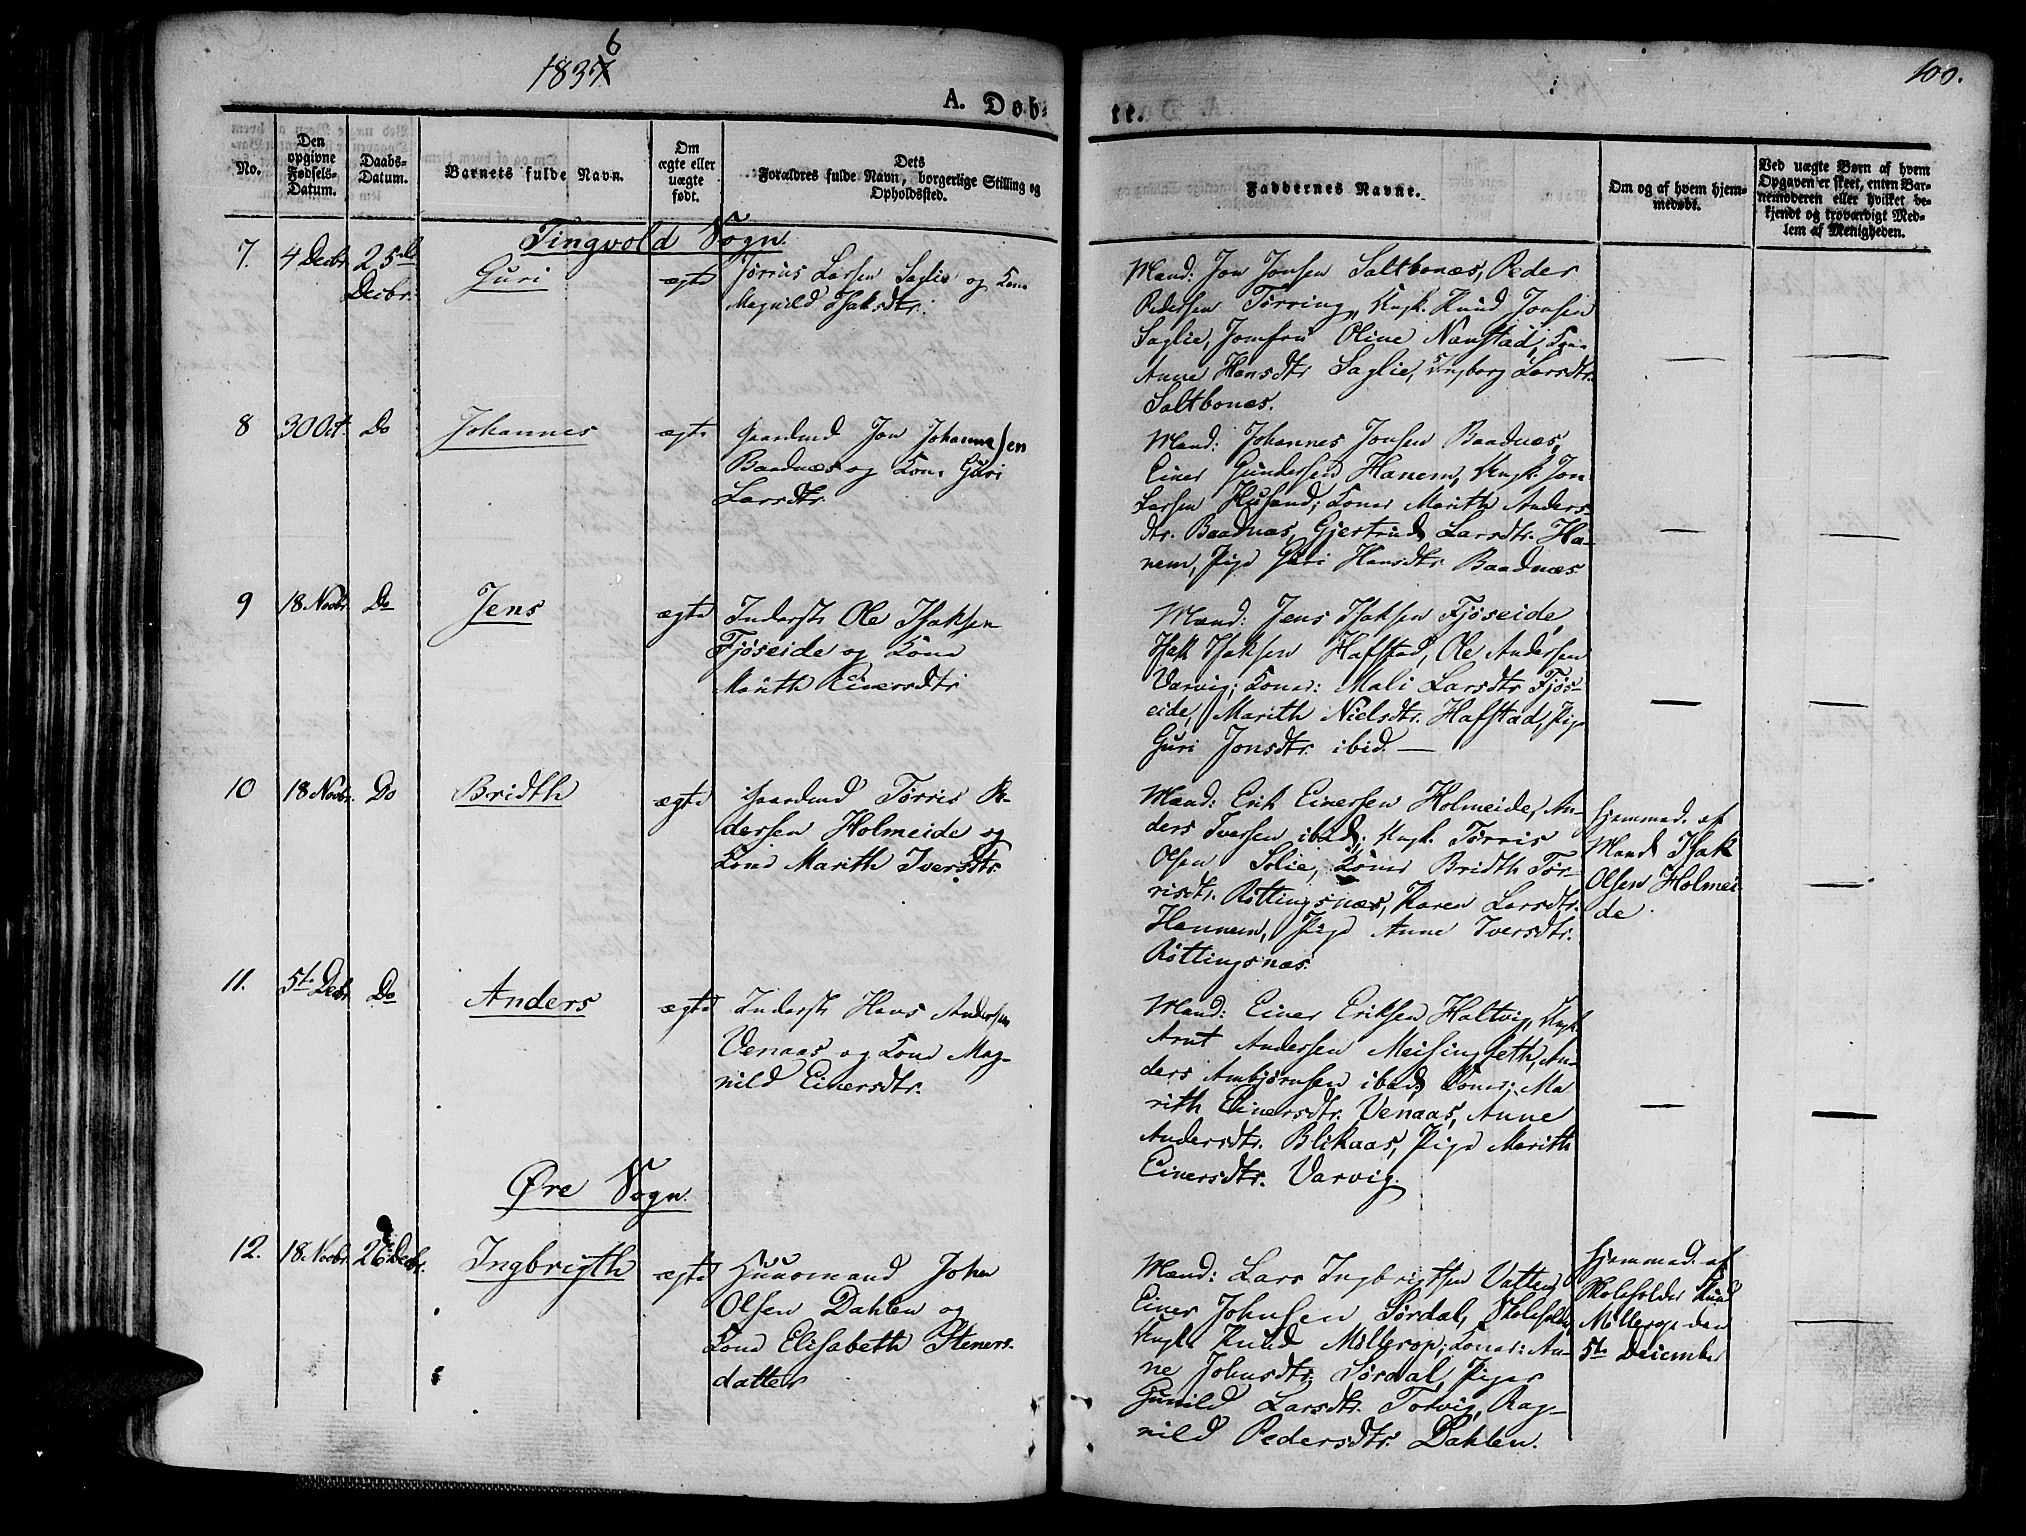 1836
100.
A. Døbte.
No.
Den opgivne Fødsels-Datum.
Daabs-Datum.
Barnets fulde Navn.
Om ægte eller uægte født.
Dets Forældres fulde Navn, borgerlige Stilling og Opholdsted.
Faddernes Navne.
Om og af hvem hjemmedøbt.
Ved uægte Børn af hvem Opgaven er skeet, enten Barnemoderen eller hvilket bekjendt og troværdigt Medlem af Menigheden.
Tingvold Sogn.
7.
4 Decbr
25de
Decbr.
Guri
ægte
Jörrus Larsen Saglie og Kone
Magnild Isaksdtr.
Mænd: Jon Jonsen Saltbonæs, Peder
Pedersen Törring, Ungk. Knud Jonsen
Saglie, Jomfru Oline Nanstad, Kone
Anne Hansdtr Saglie, Ingborg Larsdtr.
Saltbonæs.
8
30 Oct.
Do
Johannes
ægte
Gaardmd Jon Johannesen
Baadnæs og Kone Guri
Larsdtr.
Mænd: Johannes Jonsen Baadnæs,
Einer Gundersen Hanem, Ungk. Jon
Larsen Husand; Koner Marith Anders-
dtr. Baadnæs, Gjertrud Larsdtr. Ha-
nem, Pige Guri Hansdtr Baadnæs.
9
18 Novbr.
Do
Jens
ægte
Inderste Ole Isaksen
Fjöseide og Kone
Marith Einersdtr
Mænd: Jens Isaksen Fjöseide,
Isak Isaksen Hafstad, Ole Andersen
Varvig; Koner: Mali Larsdtr Fjös-
eide, Marith Nielsdtr. Hafstad, Pige
Guri Jonsdtr. ibid. —
10
18 Novbr.
Do
Bridth
ægte
Gaardmd Törris Pe-
dersen Holmeide og
Kone Marith Iversdtr.
Mænd: Erik Einersen Holmeide, An-
ders Iversen ibid; Ungk. Törris
Olsen Solie, Koner Bridth Tör-
risdtr. Röttingsnæs, Karen Larsdtr.
Hannem, Pige Anne Iversdtr.
Röttingsnæs.
Hjemmed. af
Mand Isak
Olsen Holmei-
de.
11.
5te Decbr.
Do
Anders
ægte
Inderste Hans Andersen
Venaas og Kone Mag-
nild Einersdtr.
Mænd: Einer Eriksen Holtvig, Ungk.
Arnt Andersen Meisingseth, An-
ders Ambjörnsen ibid; Koner: Ma
rith Einersdtr. Venaas, Anne
Andersdtr. Blikaas, Pige Marith
Einersdtr. Varvig.
Øre Sogn.
12.
18 Novbr.
26 Decbr.
Ingbrigth
ægte
Huusmand John
Olsen Dahlen og
Kone Elisabeth Steners-
datter
Mænd: Lars Ingbrigtsen Vatten,
Einer Johnsen Sørdal, Skoleholder
Ungk. Knud Möllerop; Koner: An-
ne Johnsdtr. Sørdal, Piger
Gunild Larsdtr. Torvig, Rag-
nild Pedersdtr. Dahlen.
Hjemmed. af
Skoleholder Knud
Möllerop den
5te December